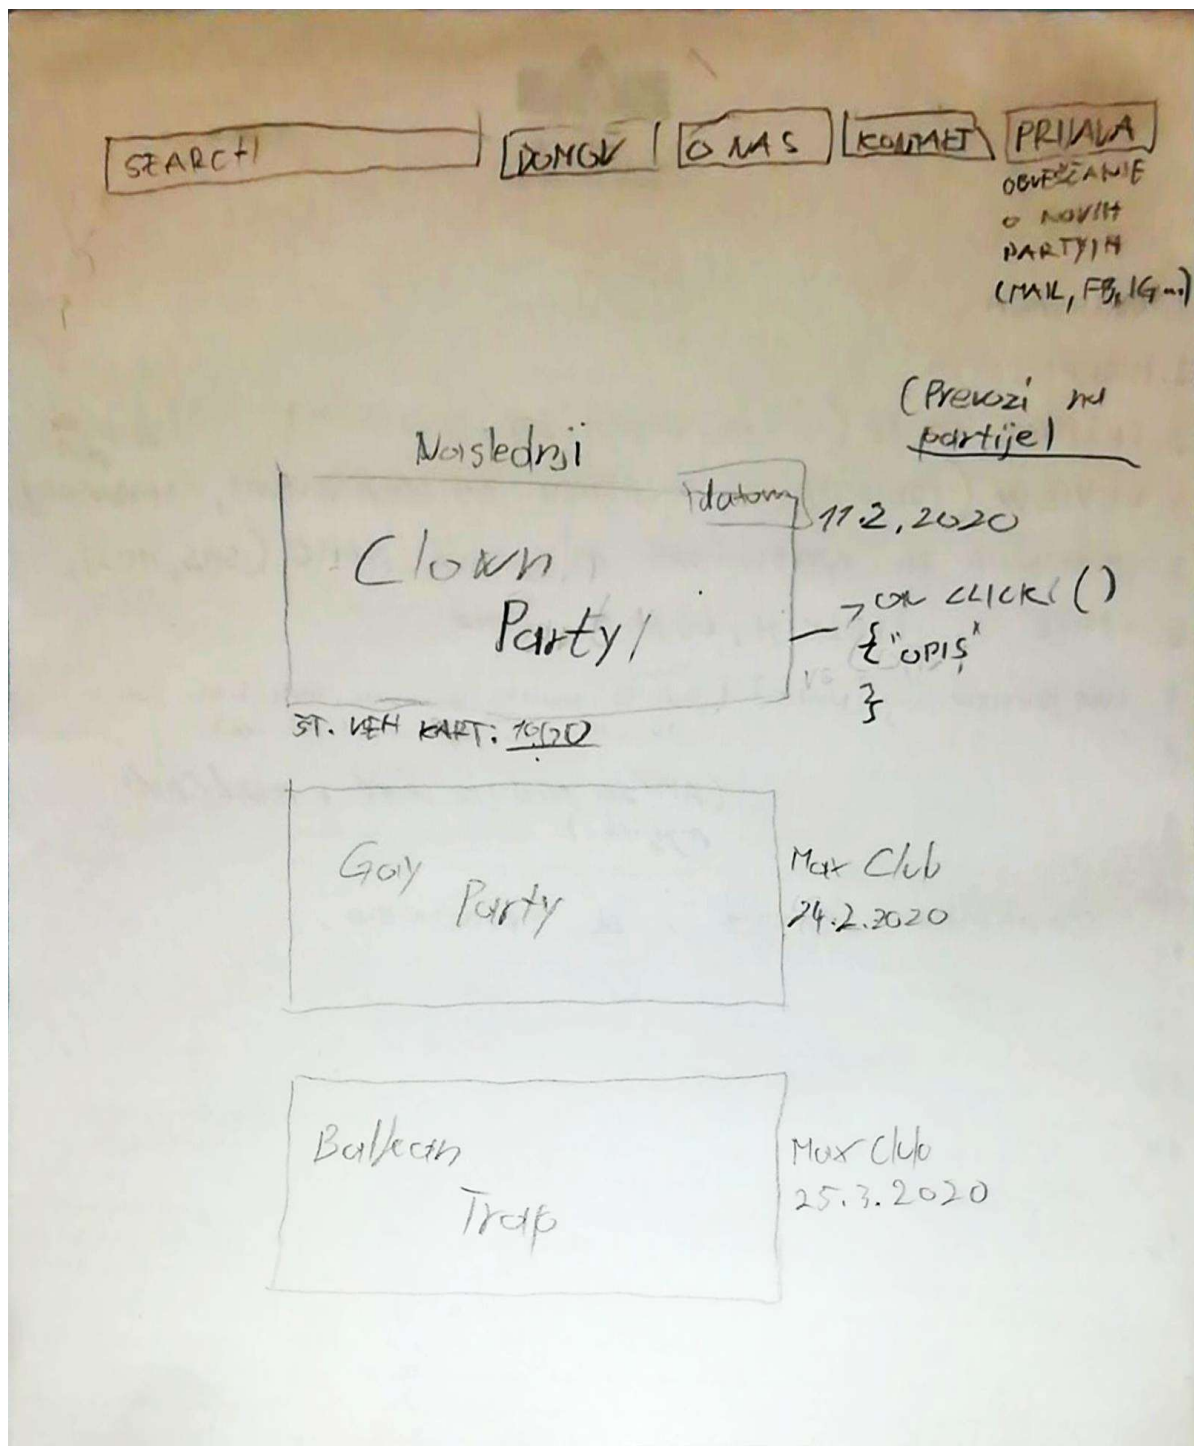 SEARCH
DOMOV
O NAS
KONTAKT
PRIJAVA
OBVEŠČANJE
O NOVIH
PARTYIH
(MAIL, FB, IG...)
(Prevozi na
partije)
Naslednji
datum
11.2.2020
Clown
Party!
ON CLICK ()
{"OPIS"
}
ŠT. VEH KART:
Gay
Party
Max Club
24.2.2020
Balkan
Trap
Max Club
25.3.2020